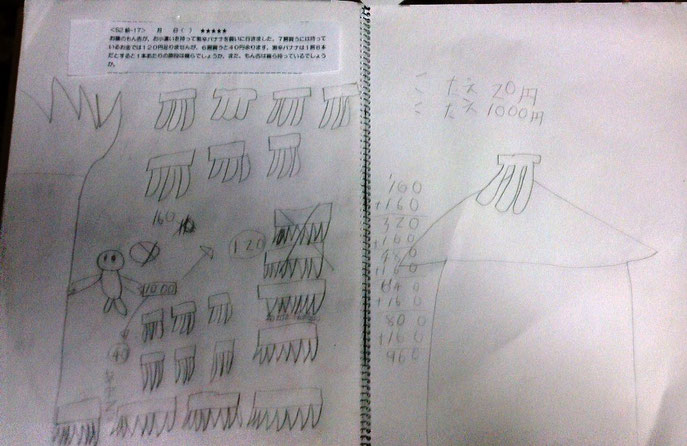 <S2級-17>　月　日（　）★★★★★
お猿のもん吉が、お小遣いを持って激辛バナナを買いに行きました。7房買うには持って
いるお金では120円足りませんが、6房買うと40円余ります。激辛バナナは1房8本
だとすると1本あたりの値段は幾らでしょうか。また、もん吉は幾ら持っているでしょう
か。
160
120
1000
40
こたえ 20円
こたえ 1000円
160
+160
320
+160
480
+160
640
+160
800
+160
960